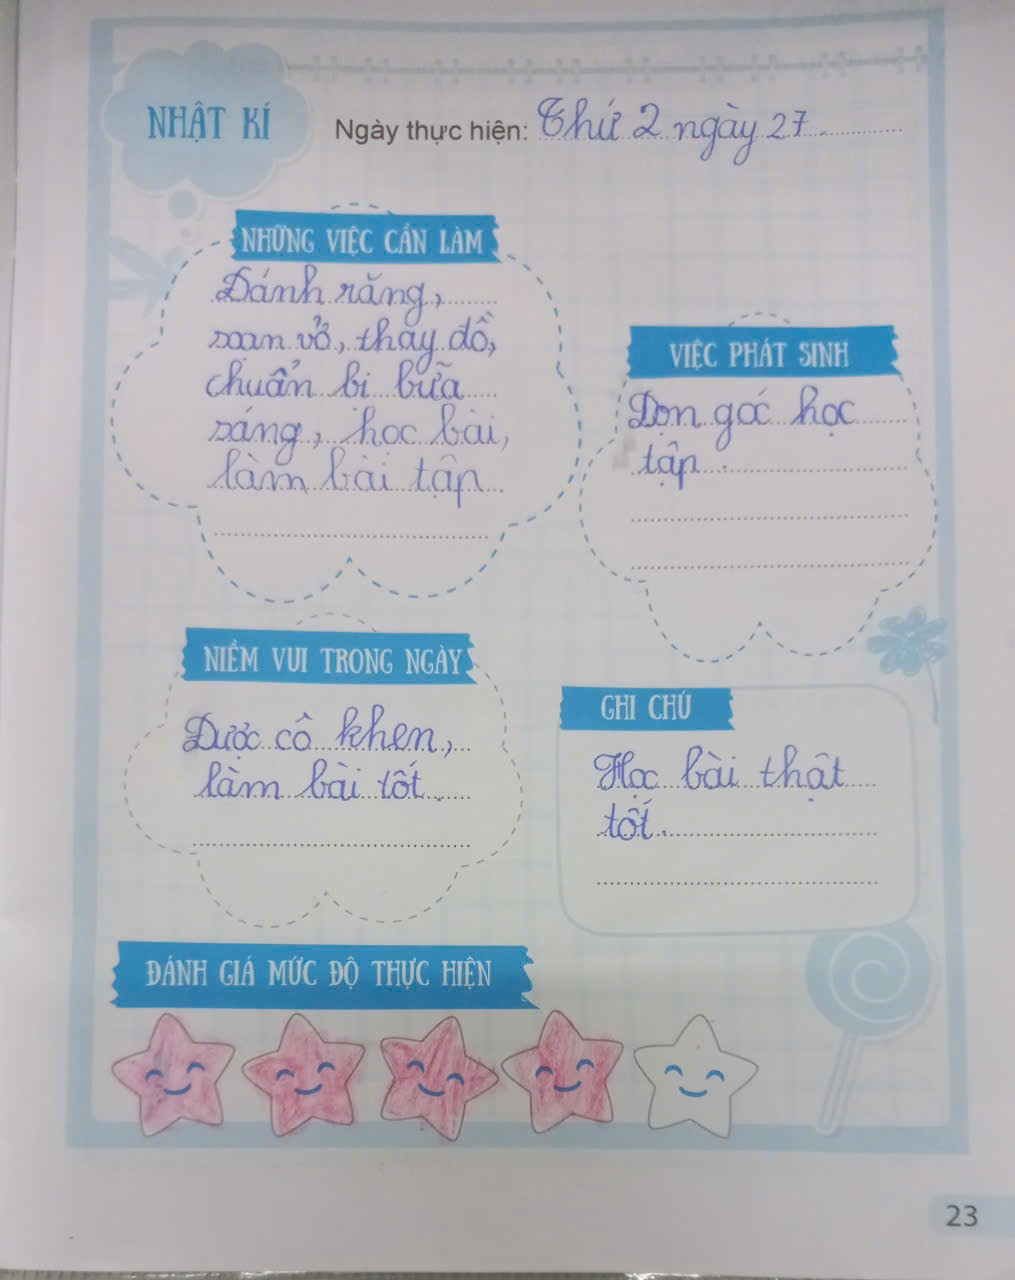 NHẬT KÍ
Ngày thực hiện: Thứ 2 ngày 27.
NHỮNG VIỆC CẦN LÀM
Dánh răng,
soạn vở, thay đồ,
chuẩn bi bữa
sáng, học bài,
làm bài tập
VIỆC PHÁT SINH
Dọn goć học
tập.
NIỀM VUI TRONG NGÀY
Dược cô khen,
làm bài tốt.
GHI CHÚ
Học bài thật
tốt.
ĐÁNH GIÁ MỨC ĐỘ THỰC HIỆN
23